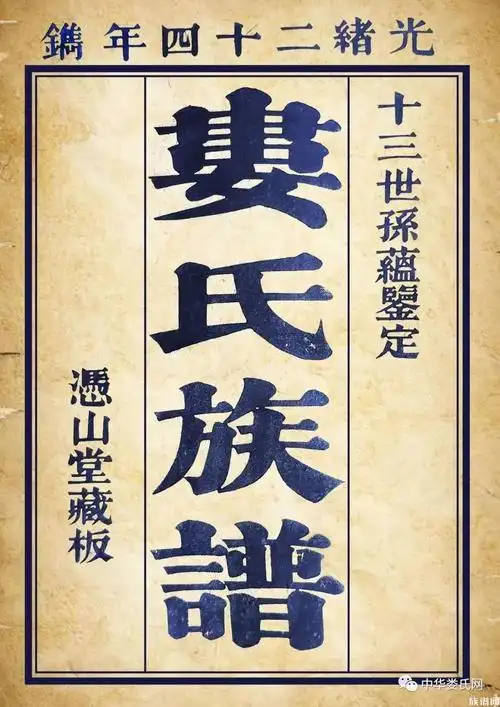 光緒二十四年鐫
十三世孫蘊鑒定
婁氏族譜
憑山堂藏板
中华娄氏网
族谱网